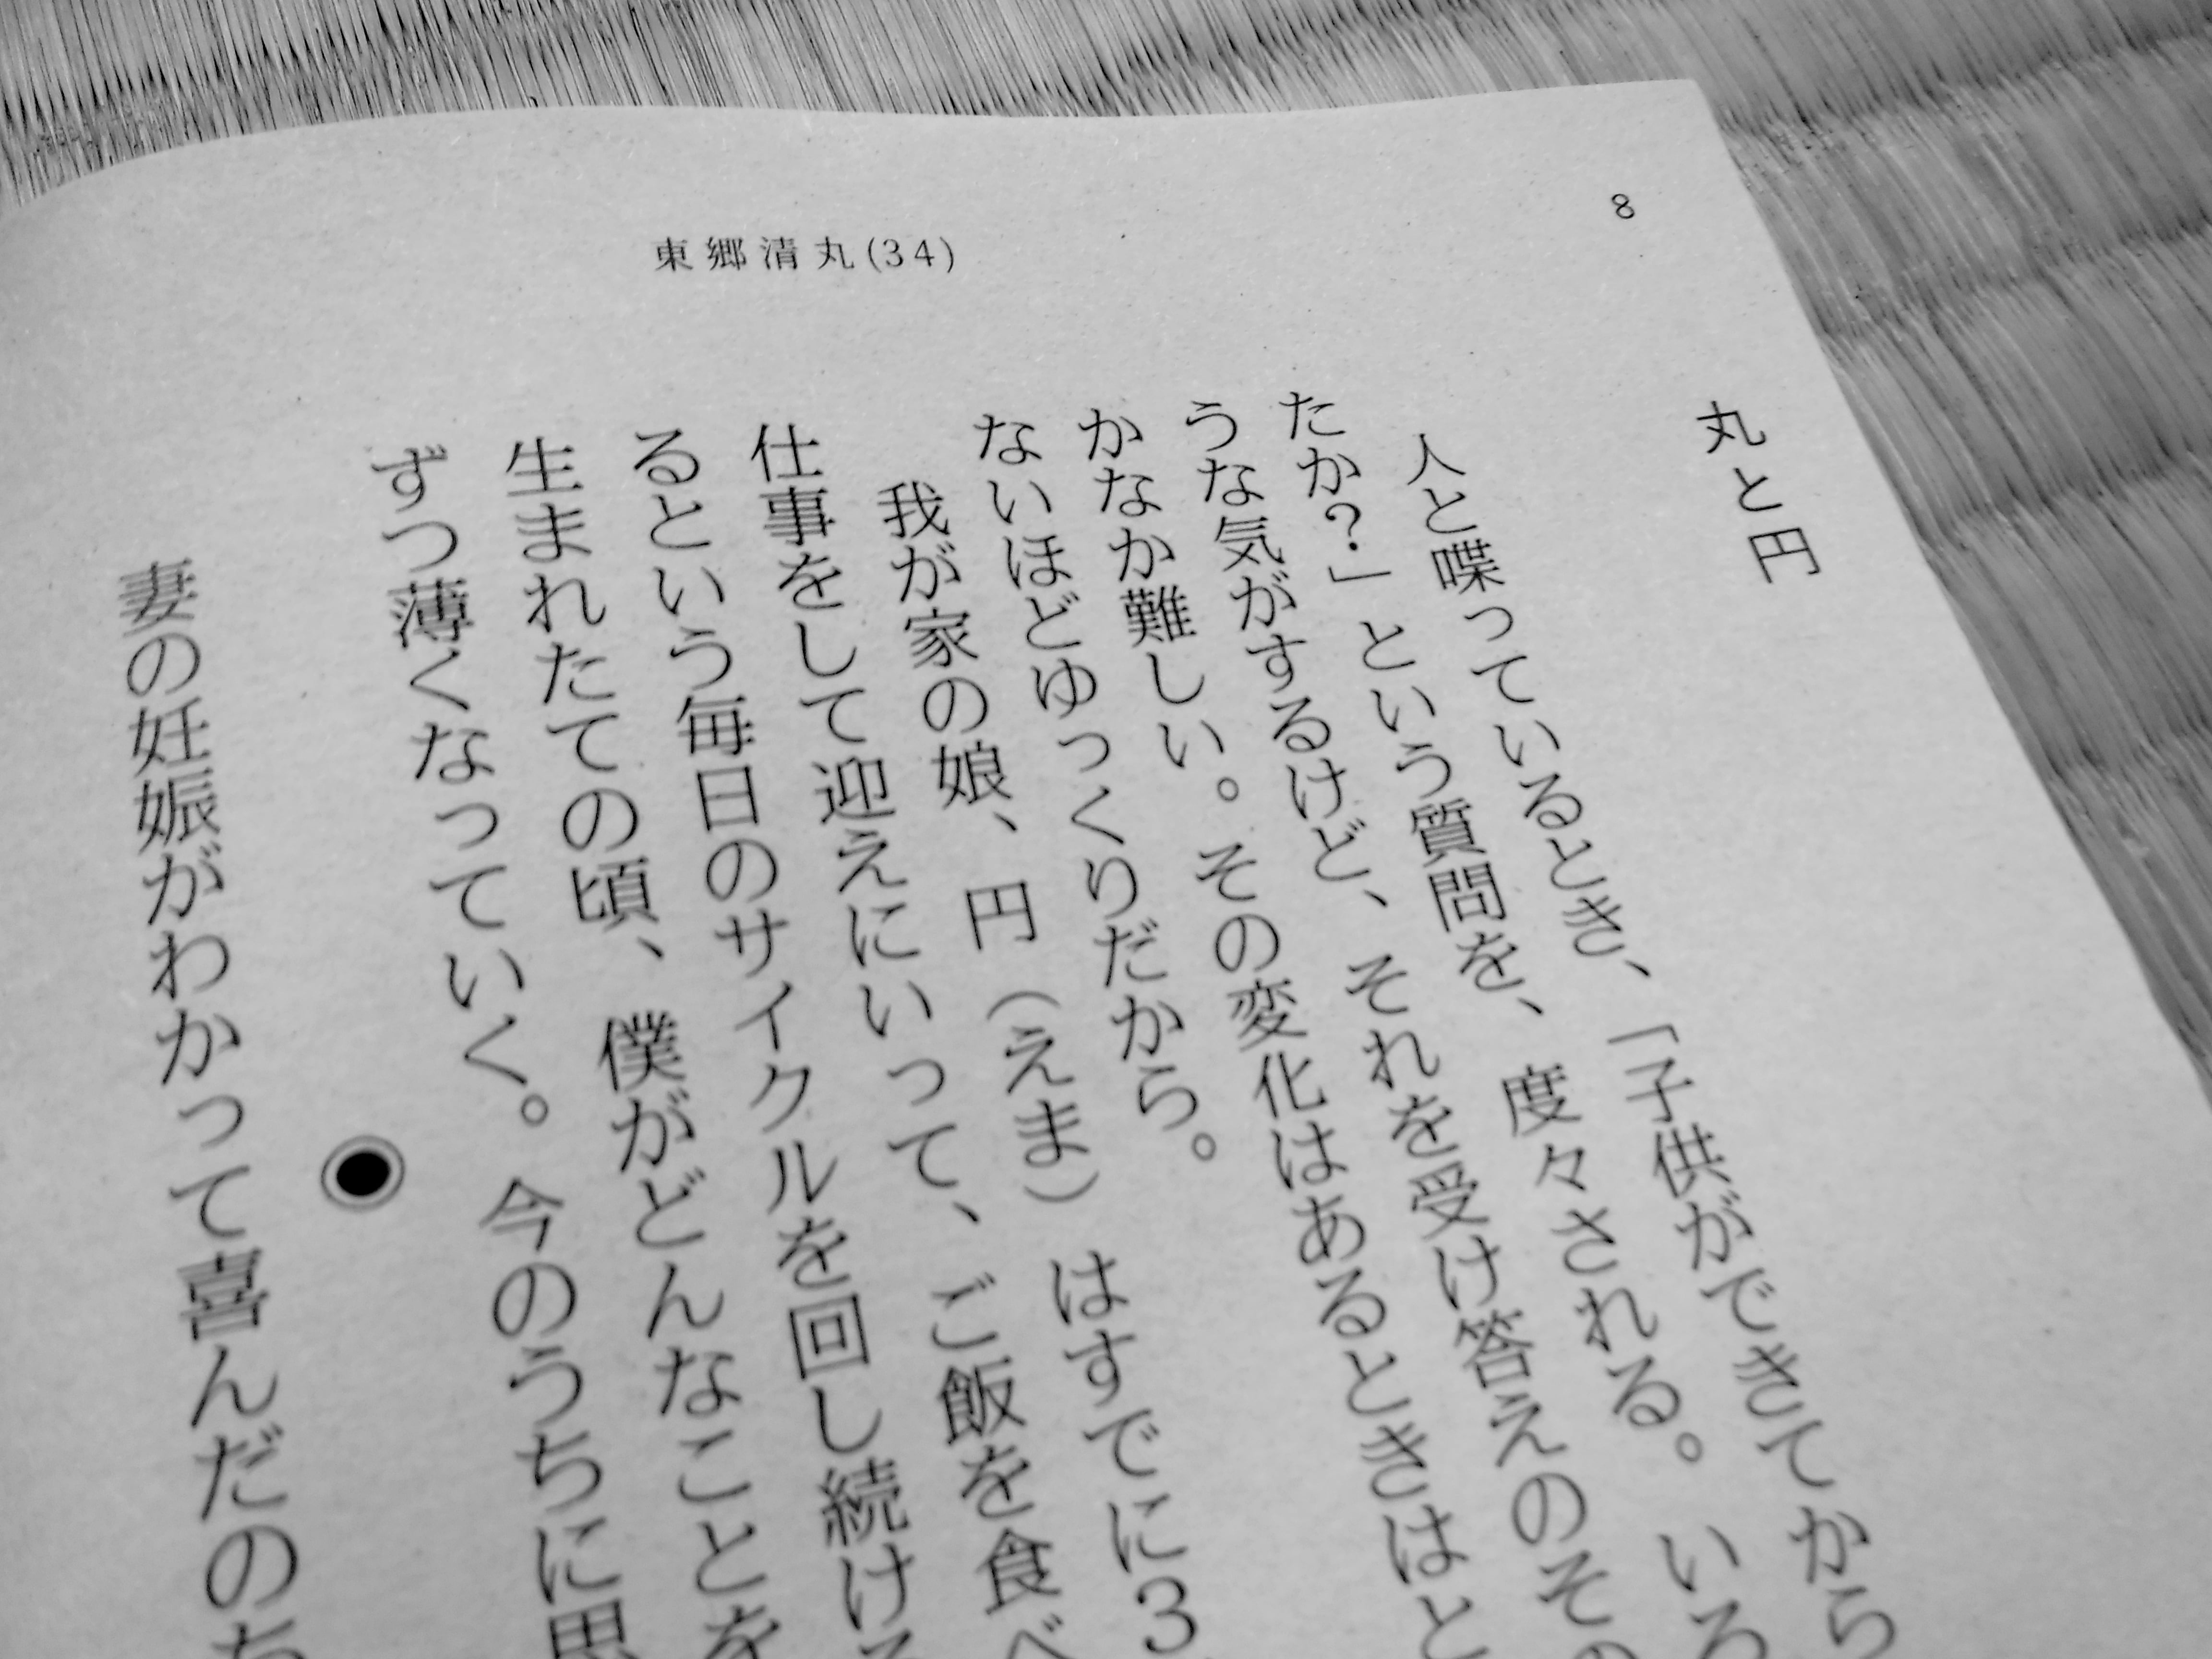 8
東郷清丸(34)
丸と円
人と喋っているとき、「子供ができてから
たか？」という質問を、度々される。いろ
うな気がするけど、それを受け答えのその
かなか難しい。その変化はあるときはと
ないほどゆっくりだから。
我が家の娘、円（えま）はすでに3
仕事をして迎えにいって、ご飯を食べ
るという毎日のサイクルを回し続ける
生まれたての頃、僕がどんなことを
ずつ薄くなっていく。今のうちに思
妻の妊娠がわかって喜んだのも